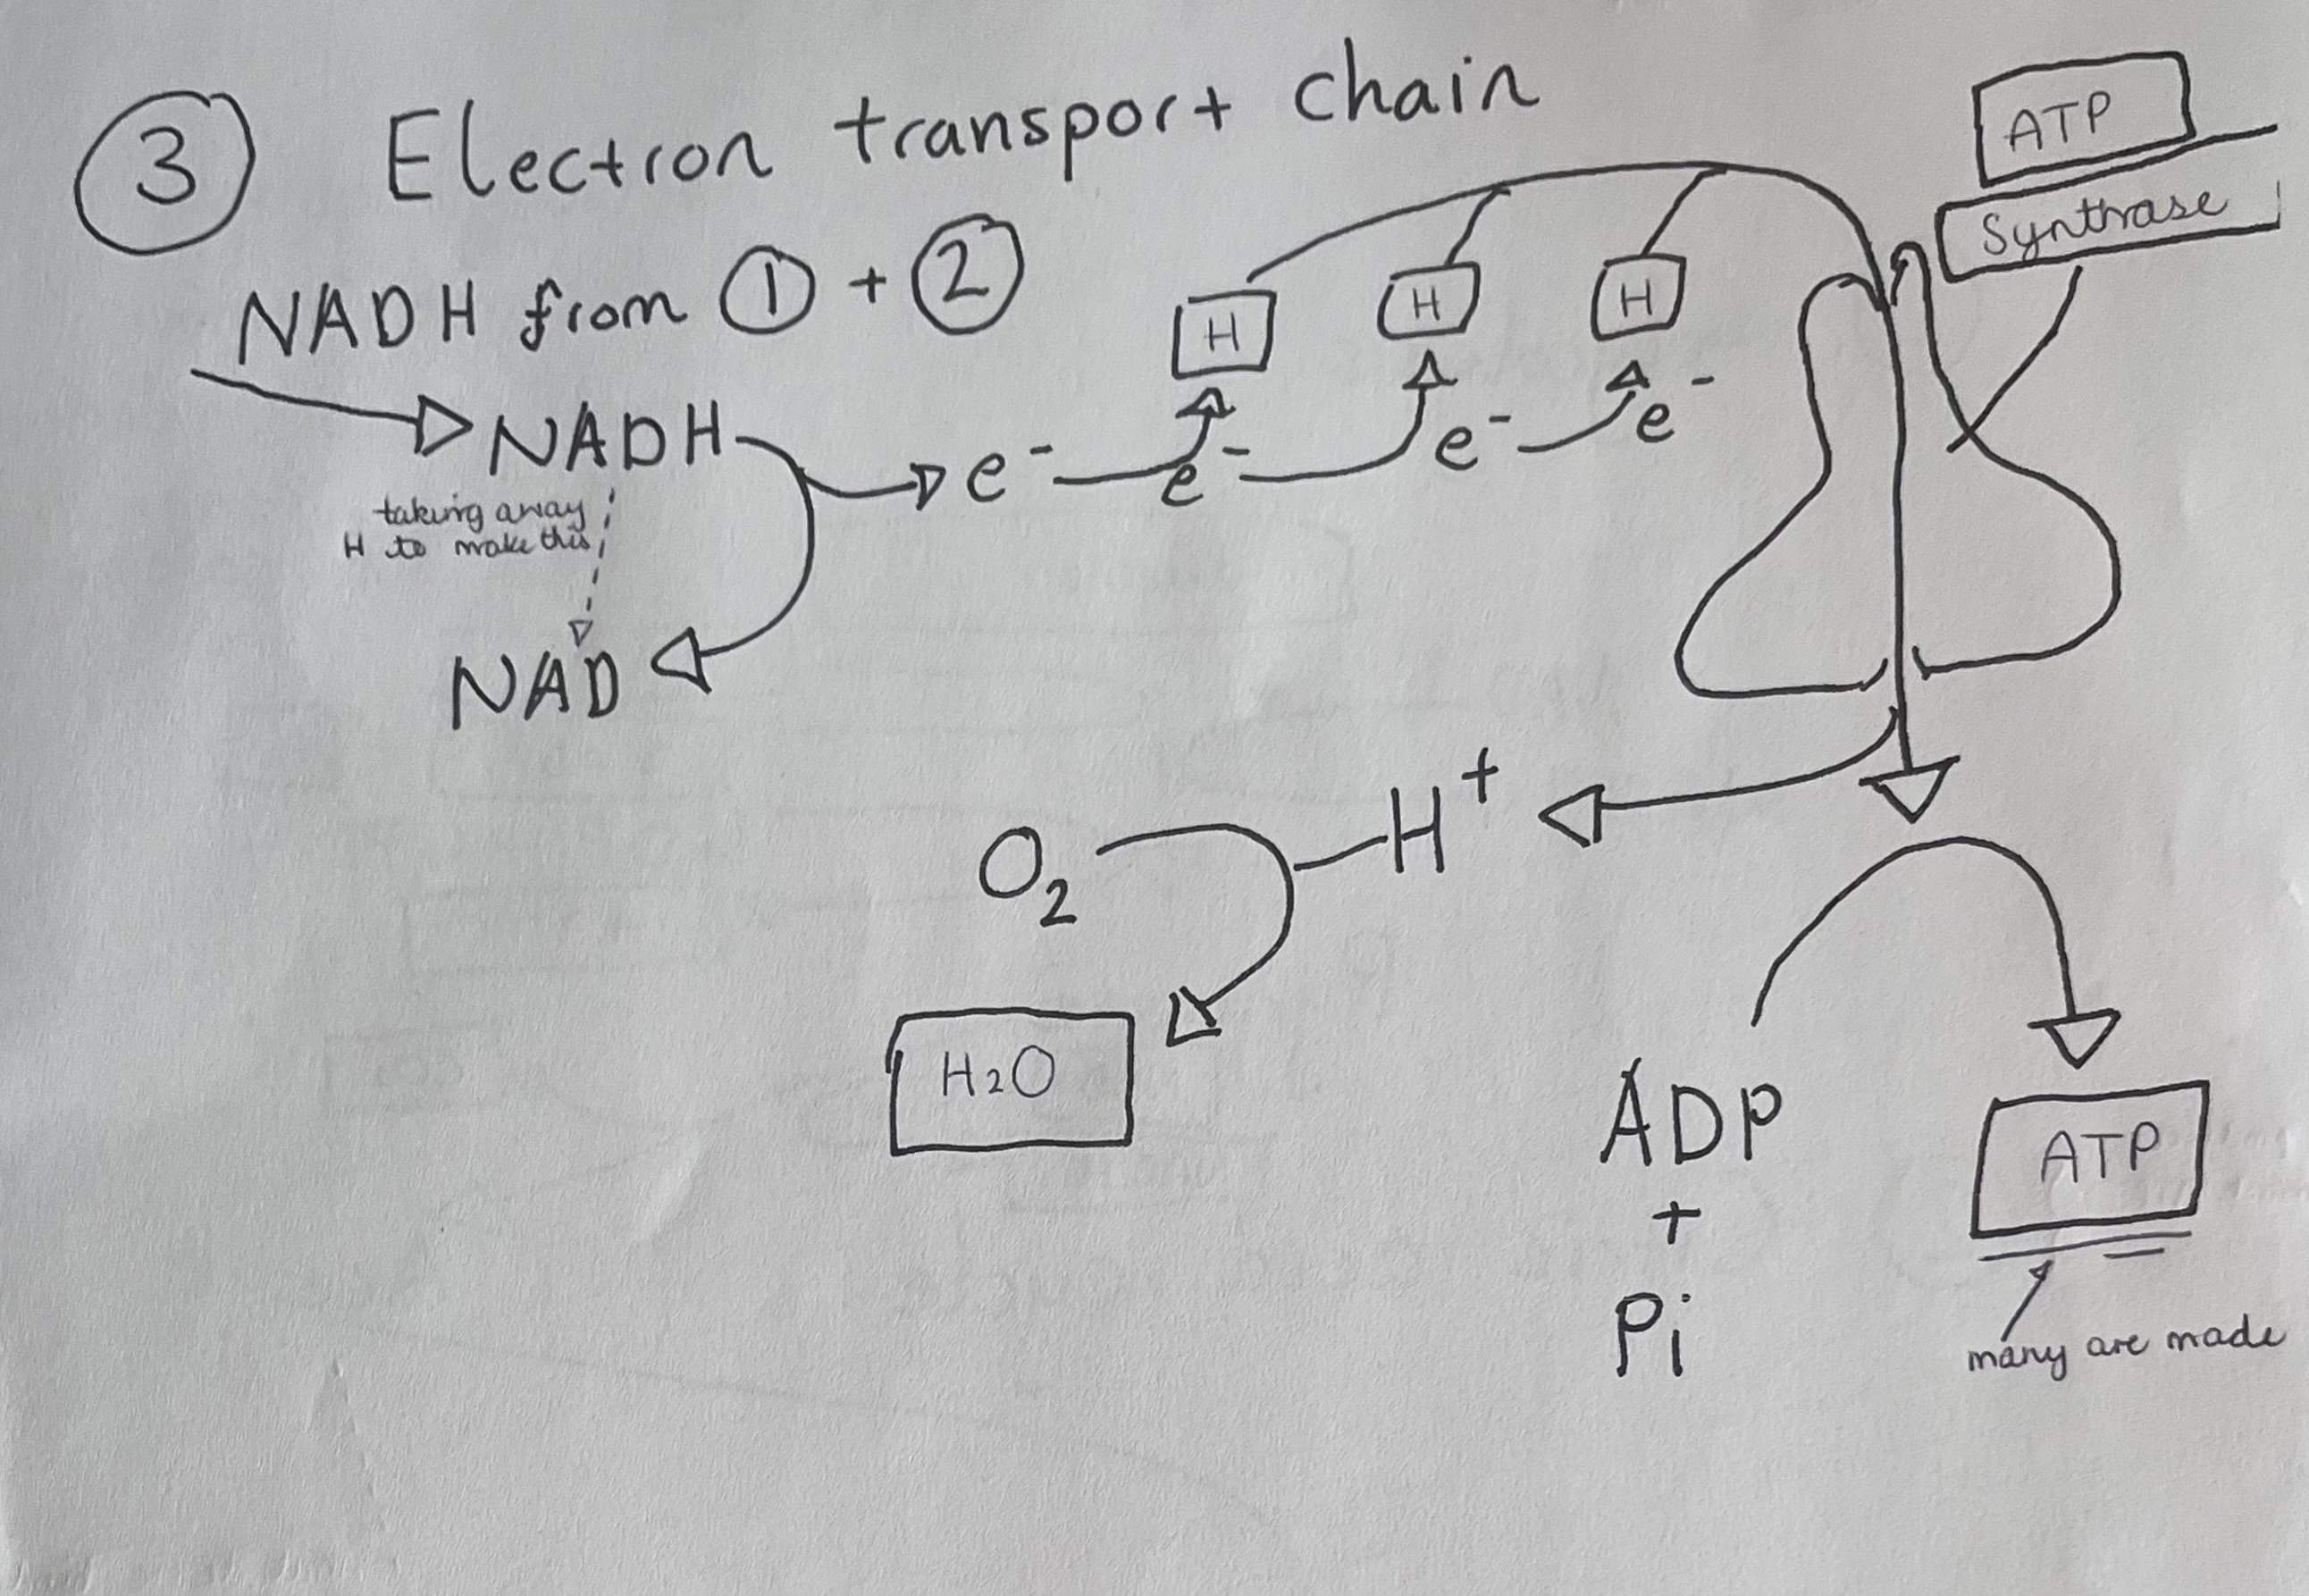 3 Electron transport chain
ATP
Synthrase
NADH from 1 + 2
H H H
NADH e- e- e- e-
taking away
H to make this
NAD
O2 H+
H2O
ADP
+
Pi
ATP
many are made